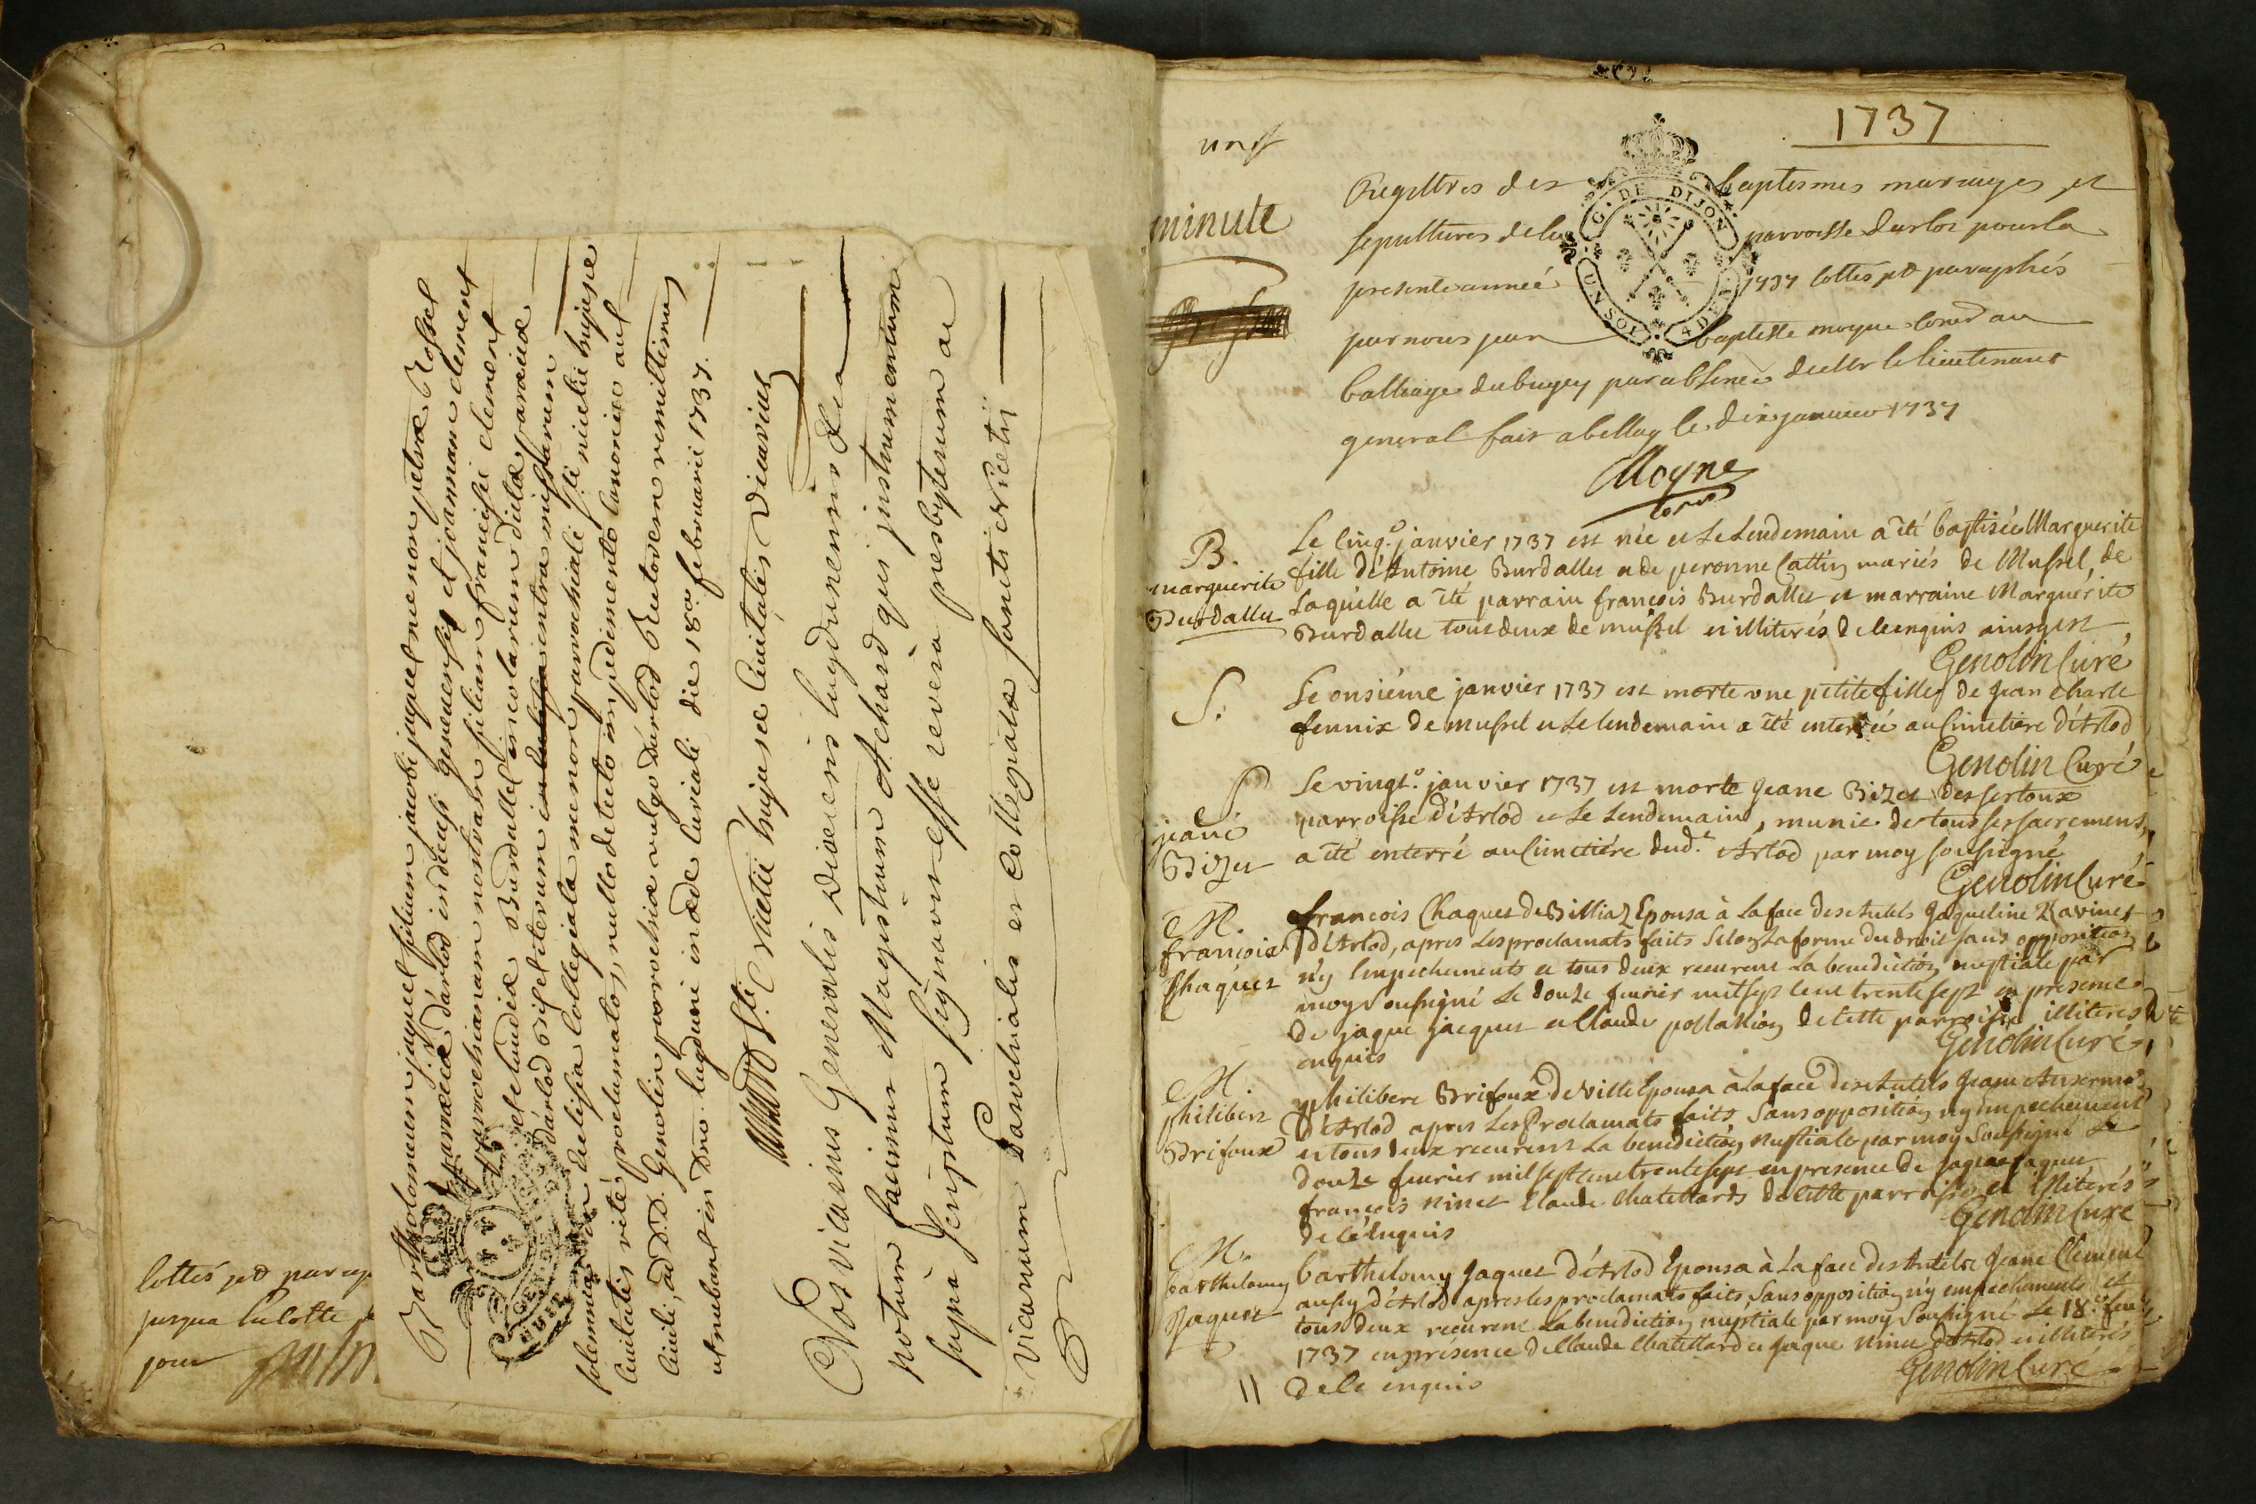 Bartholomeum jaquet filium jacobi jaquet nec non petræ Rossel
paroeciæ d'arlod in diœcesi genevensi et joannam clement
parrochianam nostram filiam francisci clement
et claudiæ Burdallet incolarum dictæ paræciæ
d'arlod bis et iterum inter missarum
solemnia in Ecclesia collegiata nec non parrochiali sti nicetii hujusce
Civitatis rite proclamatos, nullo detecto impedimento Canonico aut
Civili, ad D.D. Genolin parrochiæ vulgo d'arlod Rectorem remittimus
ut nubant in Dno. lugduni in æde curiali die 18a februarii 1737.
Sti Nicetii hujusce Civitatis Vicarius
Nos vicarius Generalis Diœcesis lugdunensis
notum facimus Magistrum Achard qui instrumentum
supra scriptum signavit esse revera presbyterum ac
vicarium Parochialis et Collegiatæ sancti Nicetii
cottés et parap
jusqua la cotte
jour
1737
G. DE DIJON
UN SOL 4 DEN.
minute
Registres des baptesmes mariages et
sepultures de la parroisse darloz pour la
presente année 1737 cottes et paraphés
par nous jean baptiste moyne coner au
balliage du bugey par absence de Mr le lieutenant
general fait a bellay le dix janvier 1737
Moyne
B.
marguerite
Burdallet
Le cinq.e janvier 1737 est née et le Lendemain a été baptisée Marguerite
fille d'Antoine Burdallet et de peronne Cattin mariés de Mussel, de
Laquelle a été parrain francois Burdallet et marraine Marguerite
Burdallet tous deux de mussel et illiterés de le enquis ainsy est
Genolin Curé
S.
Le onsiéme janvier 1737 est morte une petite fille de Jean Charle
fennix de mussel et Le lendemain a été enterrée au Cimetiere d'Arlod
Genolin Curé
S
jane
Bizet
Le vingt.e janvier 1737 est morte Jeane Bizet des sertoux
parroisse d'Arlod et Le Lendemain, munie de tous ses sacremens,
a été enterré au Cimetiére dud.t Arlod par moy soussigné
Genolin Curé
M.
francois
Chaquet
francois Chaquet de Billiaz Epousa à La face des Autels Jaqueline Ravinet
d'Arlod, apres Les proclamats faits selon La forme du droit sans opposition
n'y Empechements et tous deux recurent La benediction nuptiale par
moy soussigné Le douze fevrier mil sept cent trente sept en presence
de jaque jacquet et Claude de cette parroisse illiteres
enquis
Genolin Curé
M.
philibert
Brifoux
philibert Brifoux de Ville Epousa à La face des Autels Jeane
d'Arlod apres Les Proclamats faits sans opposition ny empechement
et tous deux recurent La benediction Nuptiale par moy Soussigné Le
douze fevrier mil sept cent trente sept en presence de jaque jaquet
francois Ninet Claude Chatellard de cette parroisse et illiterés
de ce enquis
Genolin Curé
M.
barthelemy
Jaquet
barthelemy Jaquet d'Arlod Epousa à La face des Autels Jeane Clement
aussy d'Arlod apres les proclamats faits, sans opposition n'y empechements et
tous deux recurent La benediction nuptiale par moy Soussigné Le 18.e fev.
1737 en presence de Claude Chatellard et Jaque Ninet d'Arlod et illiterés
11 de ce enquis
Genolin Curé